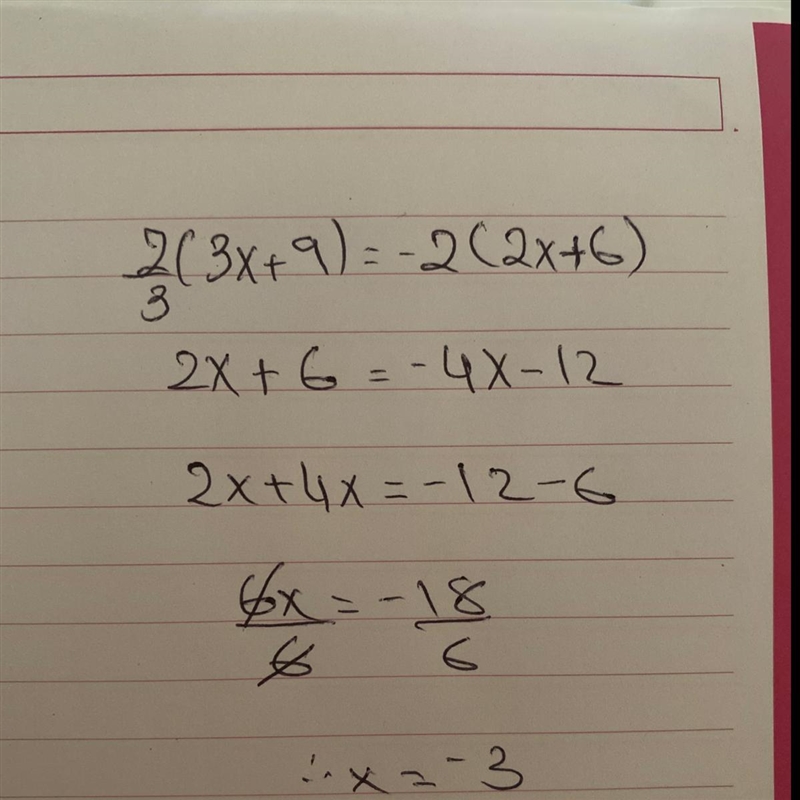 2/3(3x+9)=-2(2x+6)
2x+6=-4x-12
2x+4x=-12-6
6x/6=-18/6
∴x=-3